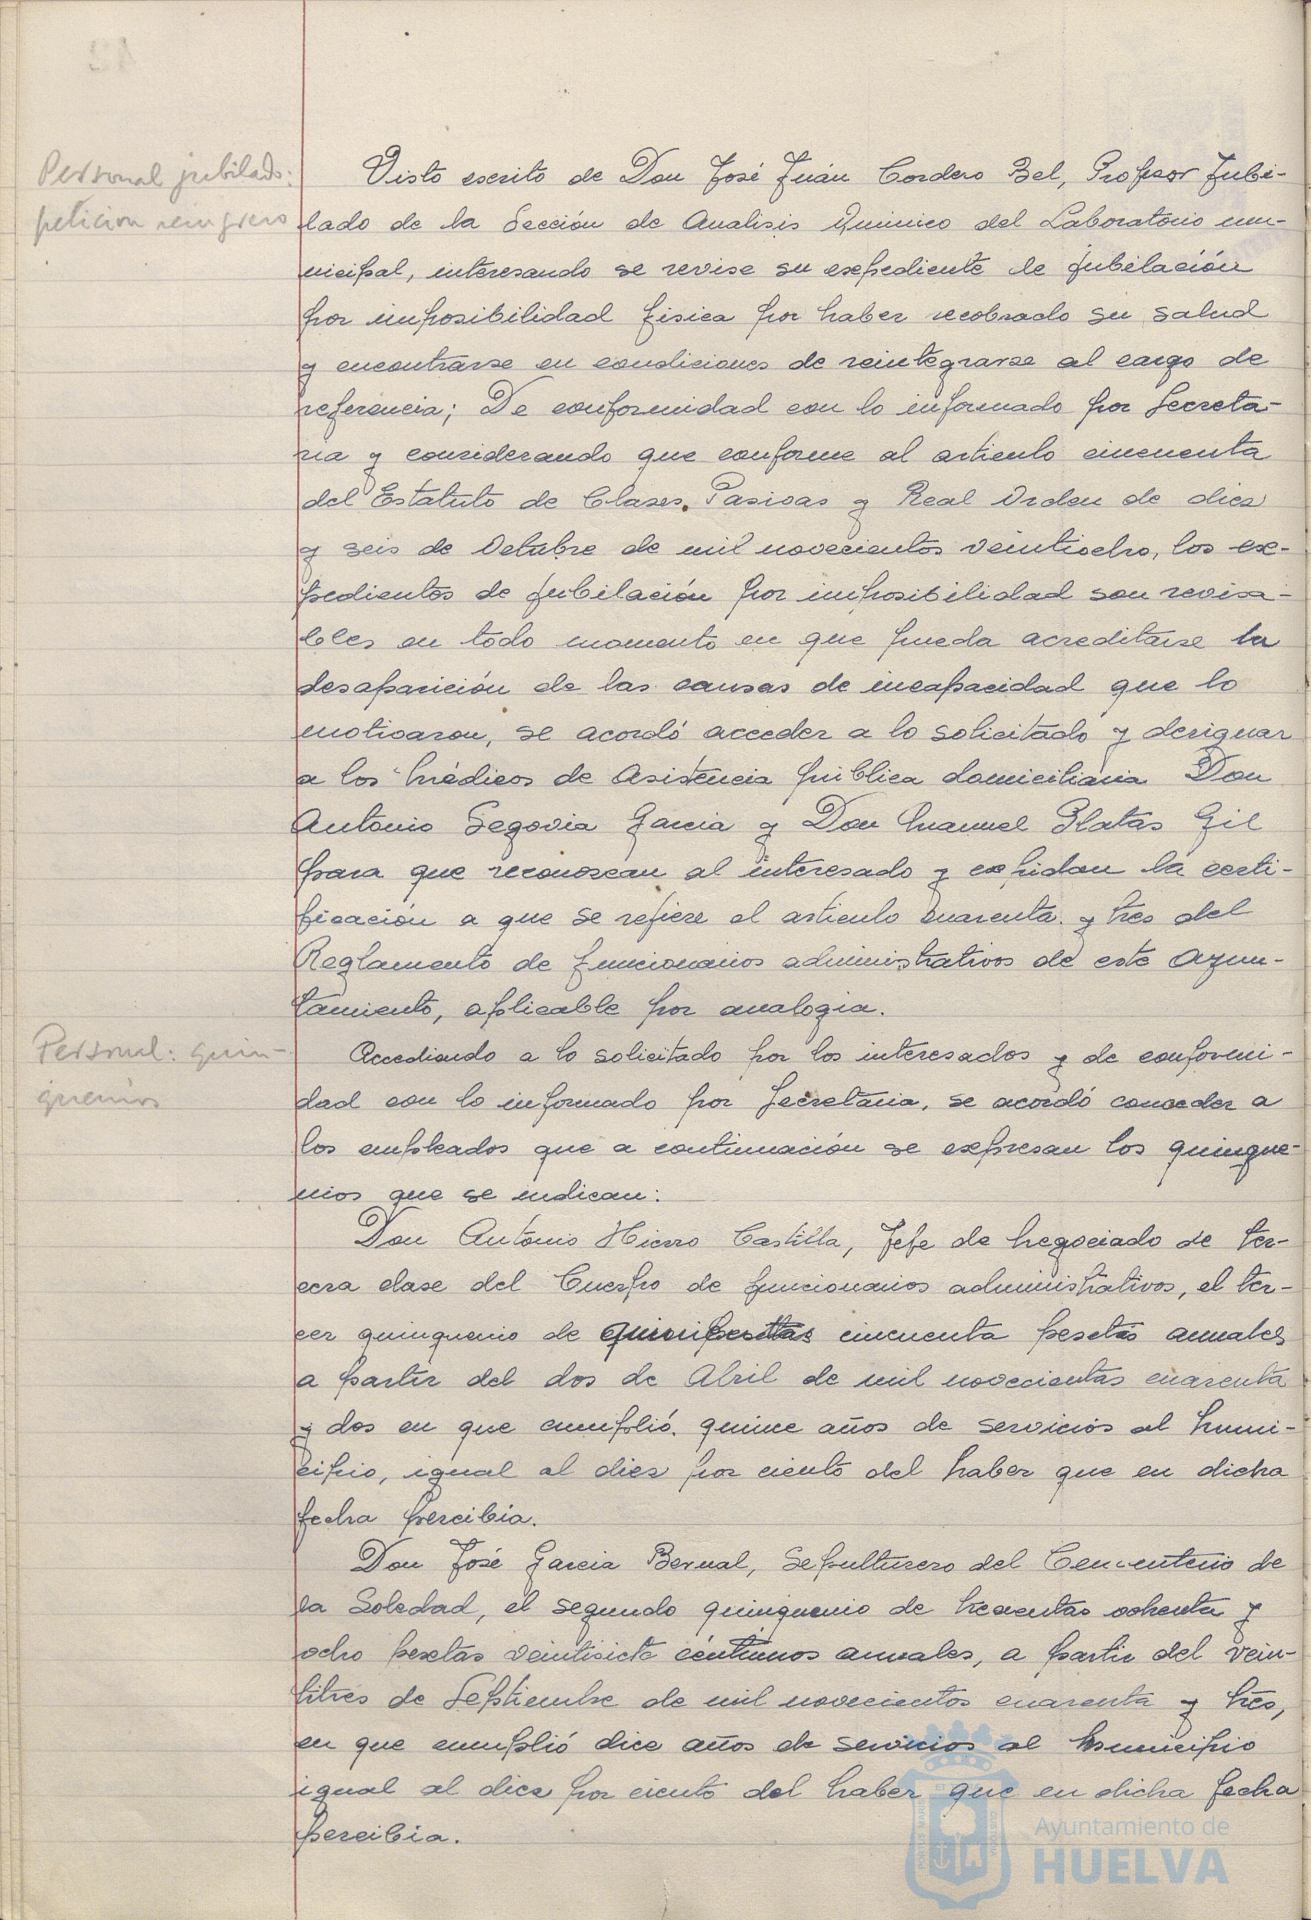 Personal jubilado:
peticion reingreso
Visto escrito de Don José Juán Cordero Bel, Profesor Jubi-
lado de la Sección de Analisis Quimico del Laboratorio mu-
nicipal, interesando se revise su expediente de jubilación
por imposibilidad fisica por haber recobrado su salud
y encontrarse en condiciones de reintegrarse al cargo de
referencia; De conformidad con lo informado por Secreta-
ria y considerando que conforme al articulo cincuenta
del Estatuto de Clases Pasivas y Real Orden de diez
y seis de Octubre de mil novecientos veintiocho, los ex-
pedientes de jubilación por imposibilidad son revisa-
bles en todo momento en que pueda acreditarse la
desaparición de las causas de incapacidad que lo
motivaron, se acordó acceder a lo solicitado y designar
a los Médicos de Asistencia pública domiciliaria Don
Antonio Segovia Garcia y Don Manuel Platas Gil
para que reconozcan al interesado y expidan la certi-
ficación a que se refiere el articulo cuarenta y tres del
Reglamento de funcionarios administrativos de este Ayun-
tamiento, aplicable por analogia.
Personal: quin-
quenios
Accediendo a lo solicitado por los interesados y de conformi-
dad con lo informado por Secretaria, se acordó conceder a
los empleados que a continuación se expresan los quinque-
nios que se indican:
Don Antonio Hierro Castilla, Jefe de Negociado de ter-
cera clase del Cuerpo de funcionarios administrativos, el ter-
cer quinquenio de cincuenta pesetas anuales
a partir del dos de Abril de mil novecientas cuarenta
y dos en que cumplió quince años de servicios al Muni-
cipio, igual al diez por ciento del haber que en dicha
fecha percibia.
Don José Garcia Bernal, Sepulturero del Cementerio de
la Soledad, el segundo quinquenio de trescientas ochenta y
ocho pesetas veintisiete céntimos anuales, a partir del vein-
titres de Septiembre de mil novecientos cuarenta y tres,
en que cumplió diez años de servicios al Municipio
igual al diez por ciento del haber que en dicha fecha
percibia.
Ayuntamiento de
HUELVA